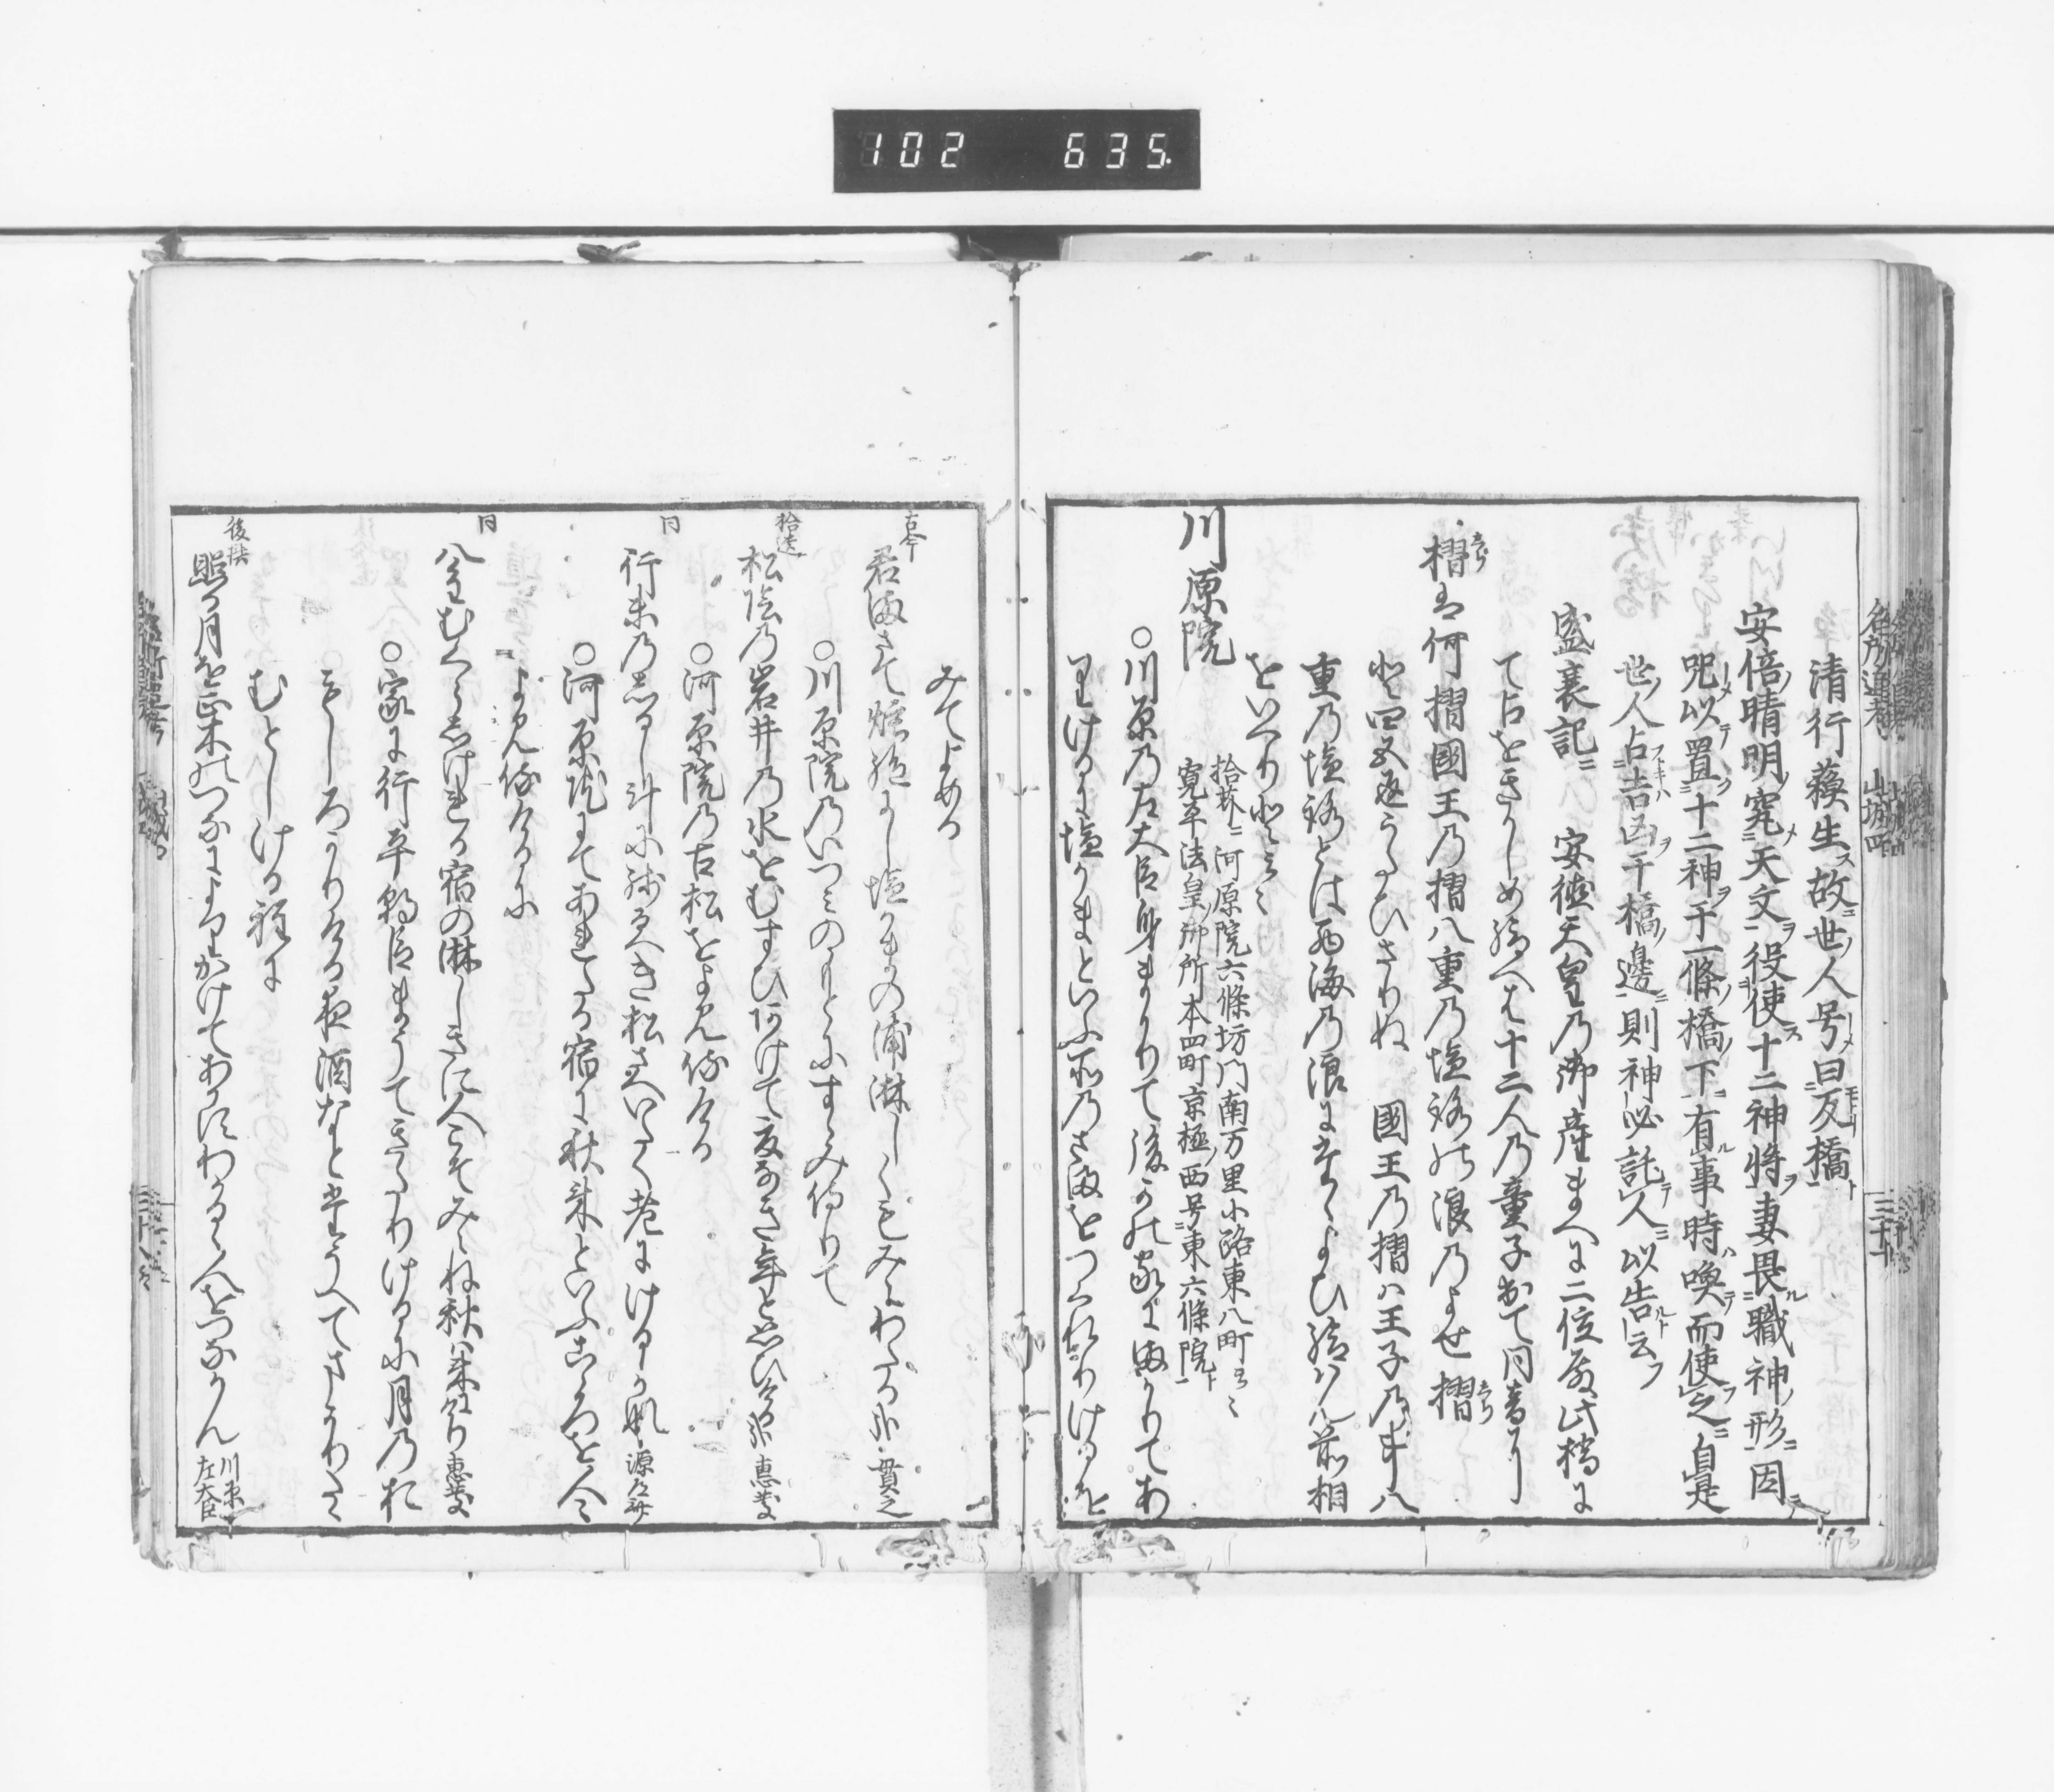 102 635
名所追考 山城四 三十
清行蘓生ス故ニ世ノ人号メ曰反橋ト
安倍ノ晴明ノ窕メ天文ヲ役使ス十二神将ヲ妻畏ル職神ノ形ニ因
咒メ以テ置ク十二神ヲ于一條ノ橋ノ下ニ有ル事時ハ喚テ而使フ之ニ自是
世ノ人占吉凶ヲ于橋ノ邊ニ則神必託テ人ニ以告ルト云フ
盛衰記ニ 安徳天皇乃御産まへに二位殿此橋に
て占をきかしめ給へは十二人乃童子出て同音に
榴は何榴國王乃榴八重乃塩路の浪乃よせ榴
と四五返うたひさりぬ 國王乃榴ハ王子乃事八
重乃塩路とは西海乃浪に
をいへりとそ云々
川原院 拾芥ニ河原院六條坊門南万里小路東八町云々
寛平法皇ノ御所本四町京極ノ西号ニ東六條院ト
○川原乃左大臣身まかりて後かの家にまかりてあ
りけるに塩かまといふ所乃さまをつくれりけるを
みてよめる
古今
君まさて煙絶にし塩かまの浦淋しくもみえわたる哉 貫之
○川原院乃いつみのもとにすゝみ侍りて
拾遺
松陰乃岩井乃水をむすひあけて夏なき年と思ひける哉 恵慶
○河原院乃古松をよみ侍ける
同
行末乃しるし斗に残るへき松さへいたく老にけるかな 源道済
○河原院にてあれたる宿に秋来といふこゝろを人〻
よみ侍けるに
同
八重むくらしけれる宿の淋しきに人こそみえね秋ハ来にけり 恵慶
○家に行平朝臣まうてきたりけるに月乃お
もしろかりける夜酒なとたうへてまかりたゝ
むとしける程に
後撰
照月を正木のつなによりかけてあかすわかるゝ人をつなかん 川原左大臣